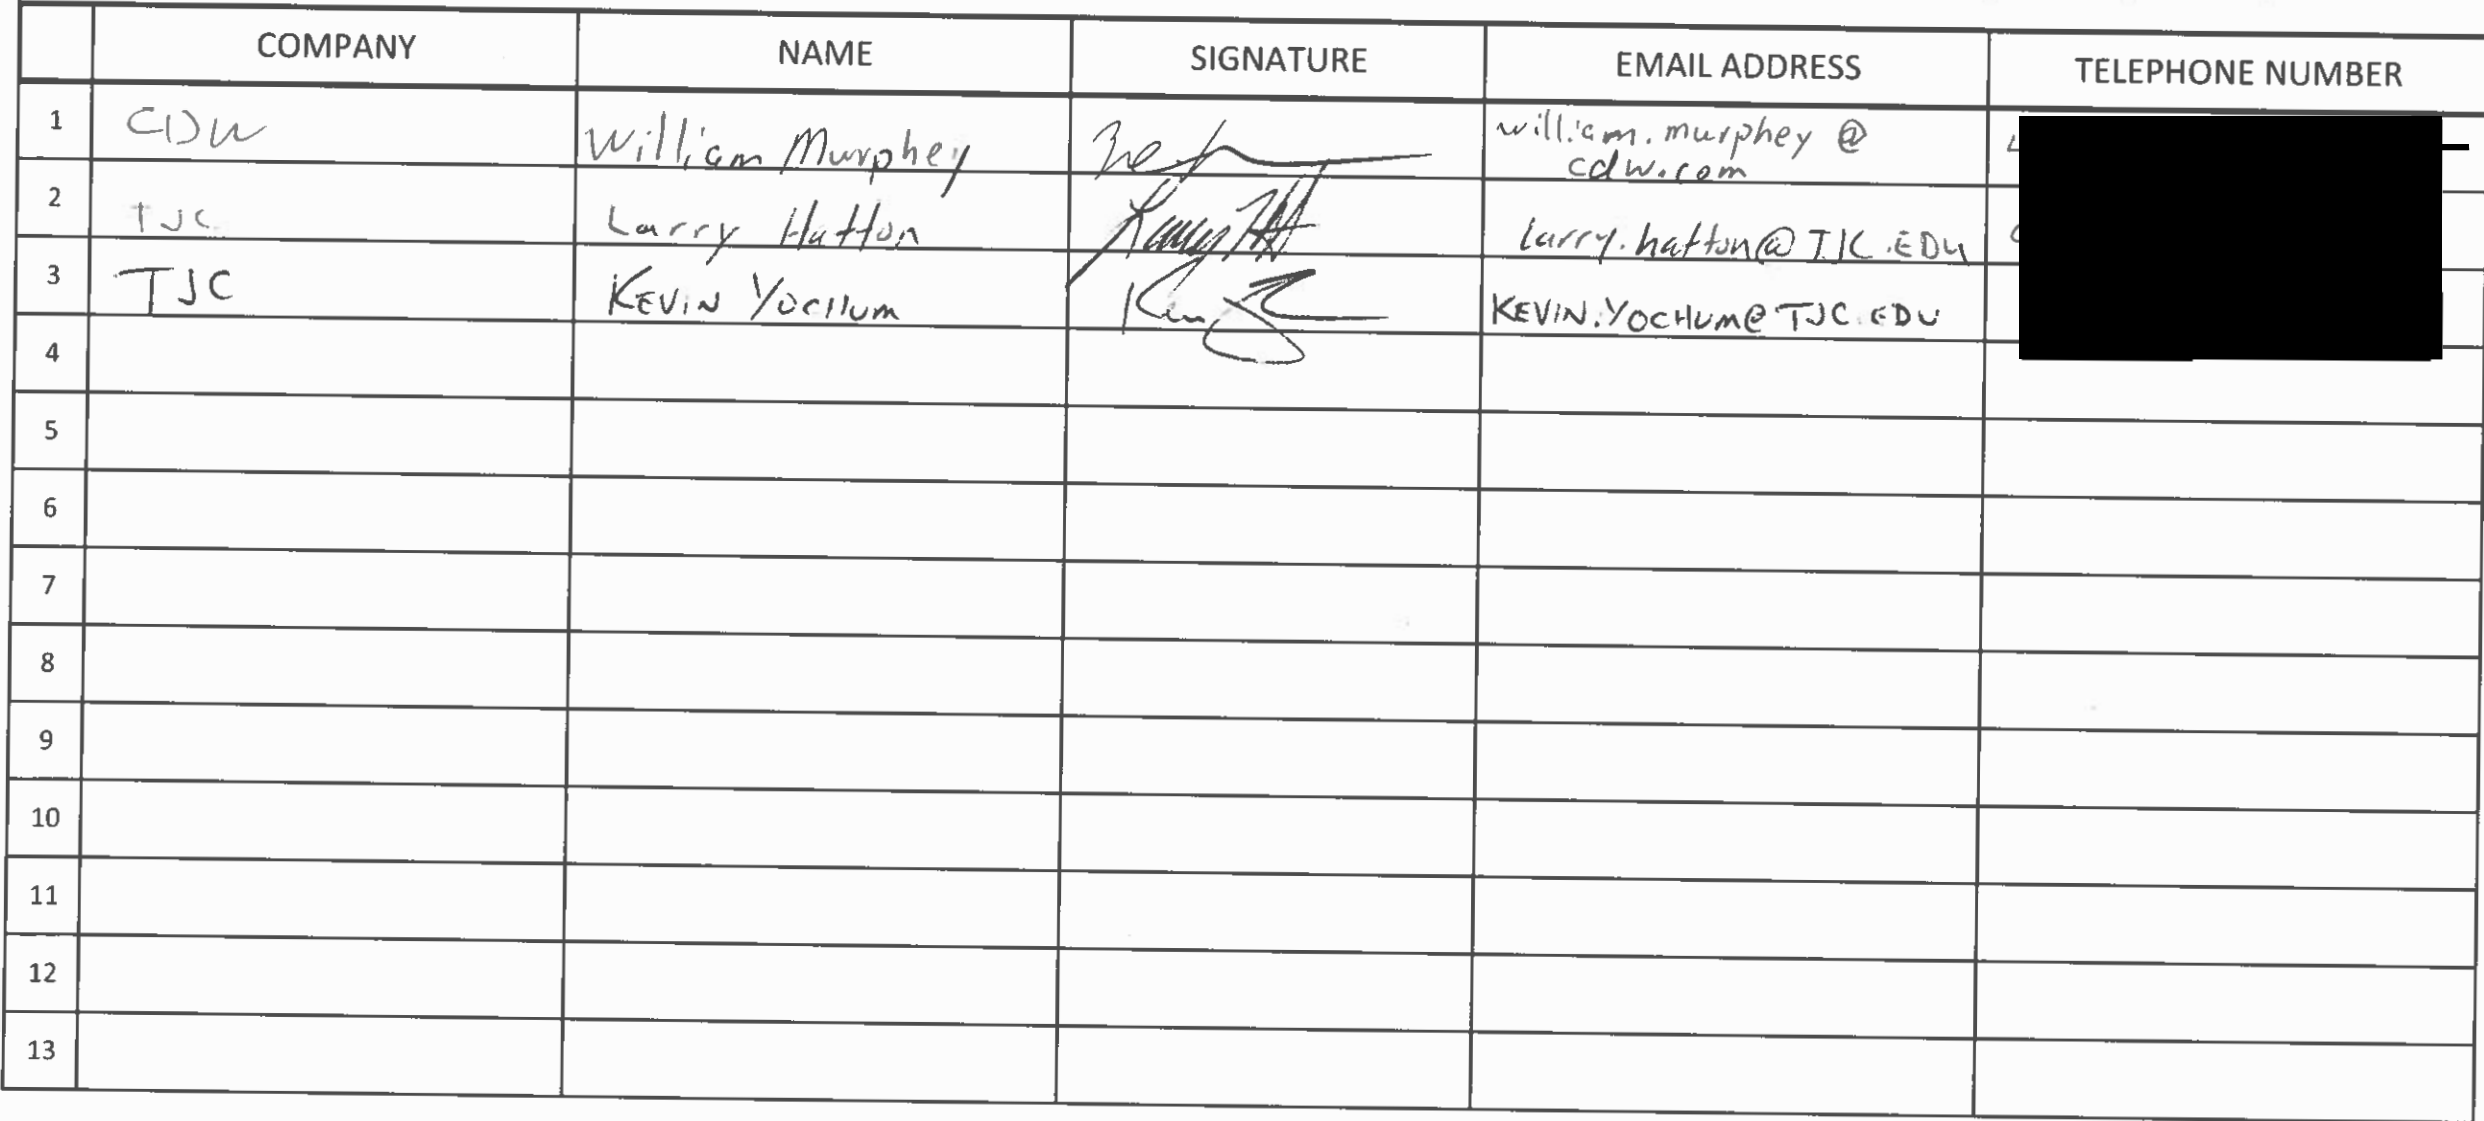 COMPANY NAME SIGNATURE EMAIL ADDRESS TELEPHONE NUMBER
1 CDW William Murphey william.murphey @
cdw.com
2 TJC Larry Hatton larry.hatton@TJC.EDU
3 TJC KEVIN YOCHUM KEVIN.YOCHUM@TJC.EDU
4
5
6
7
8
9
10
11
12
13